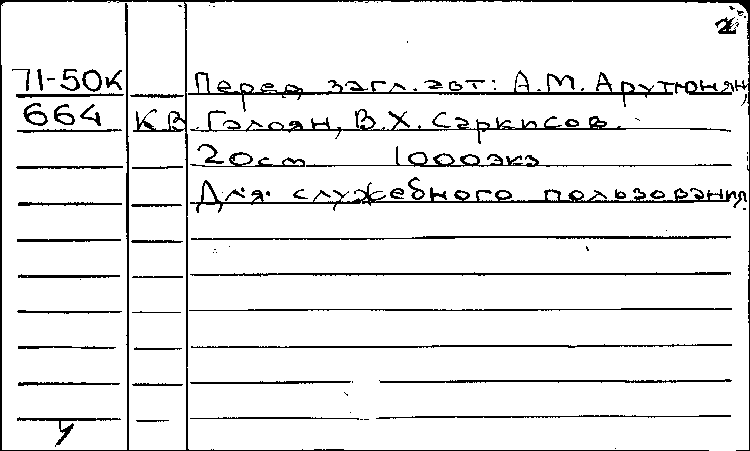 2
71-50к Перед загл. авт: А.М. Арутюнян,
664 К.В. Галоян, В.Х. Саркисов.
20см 1000экз
Для служебного пользования